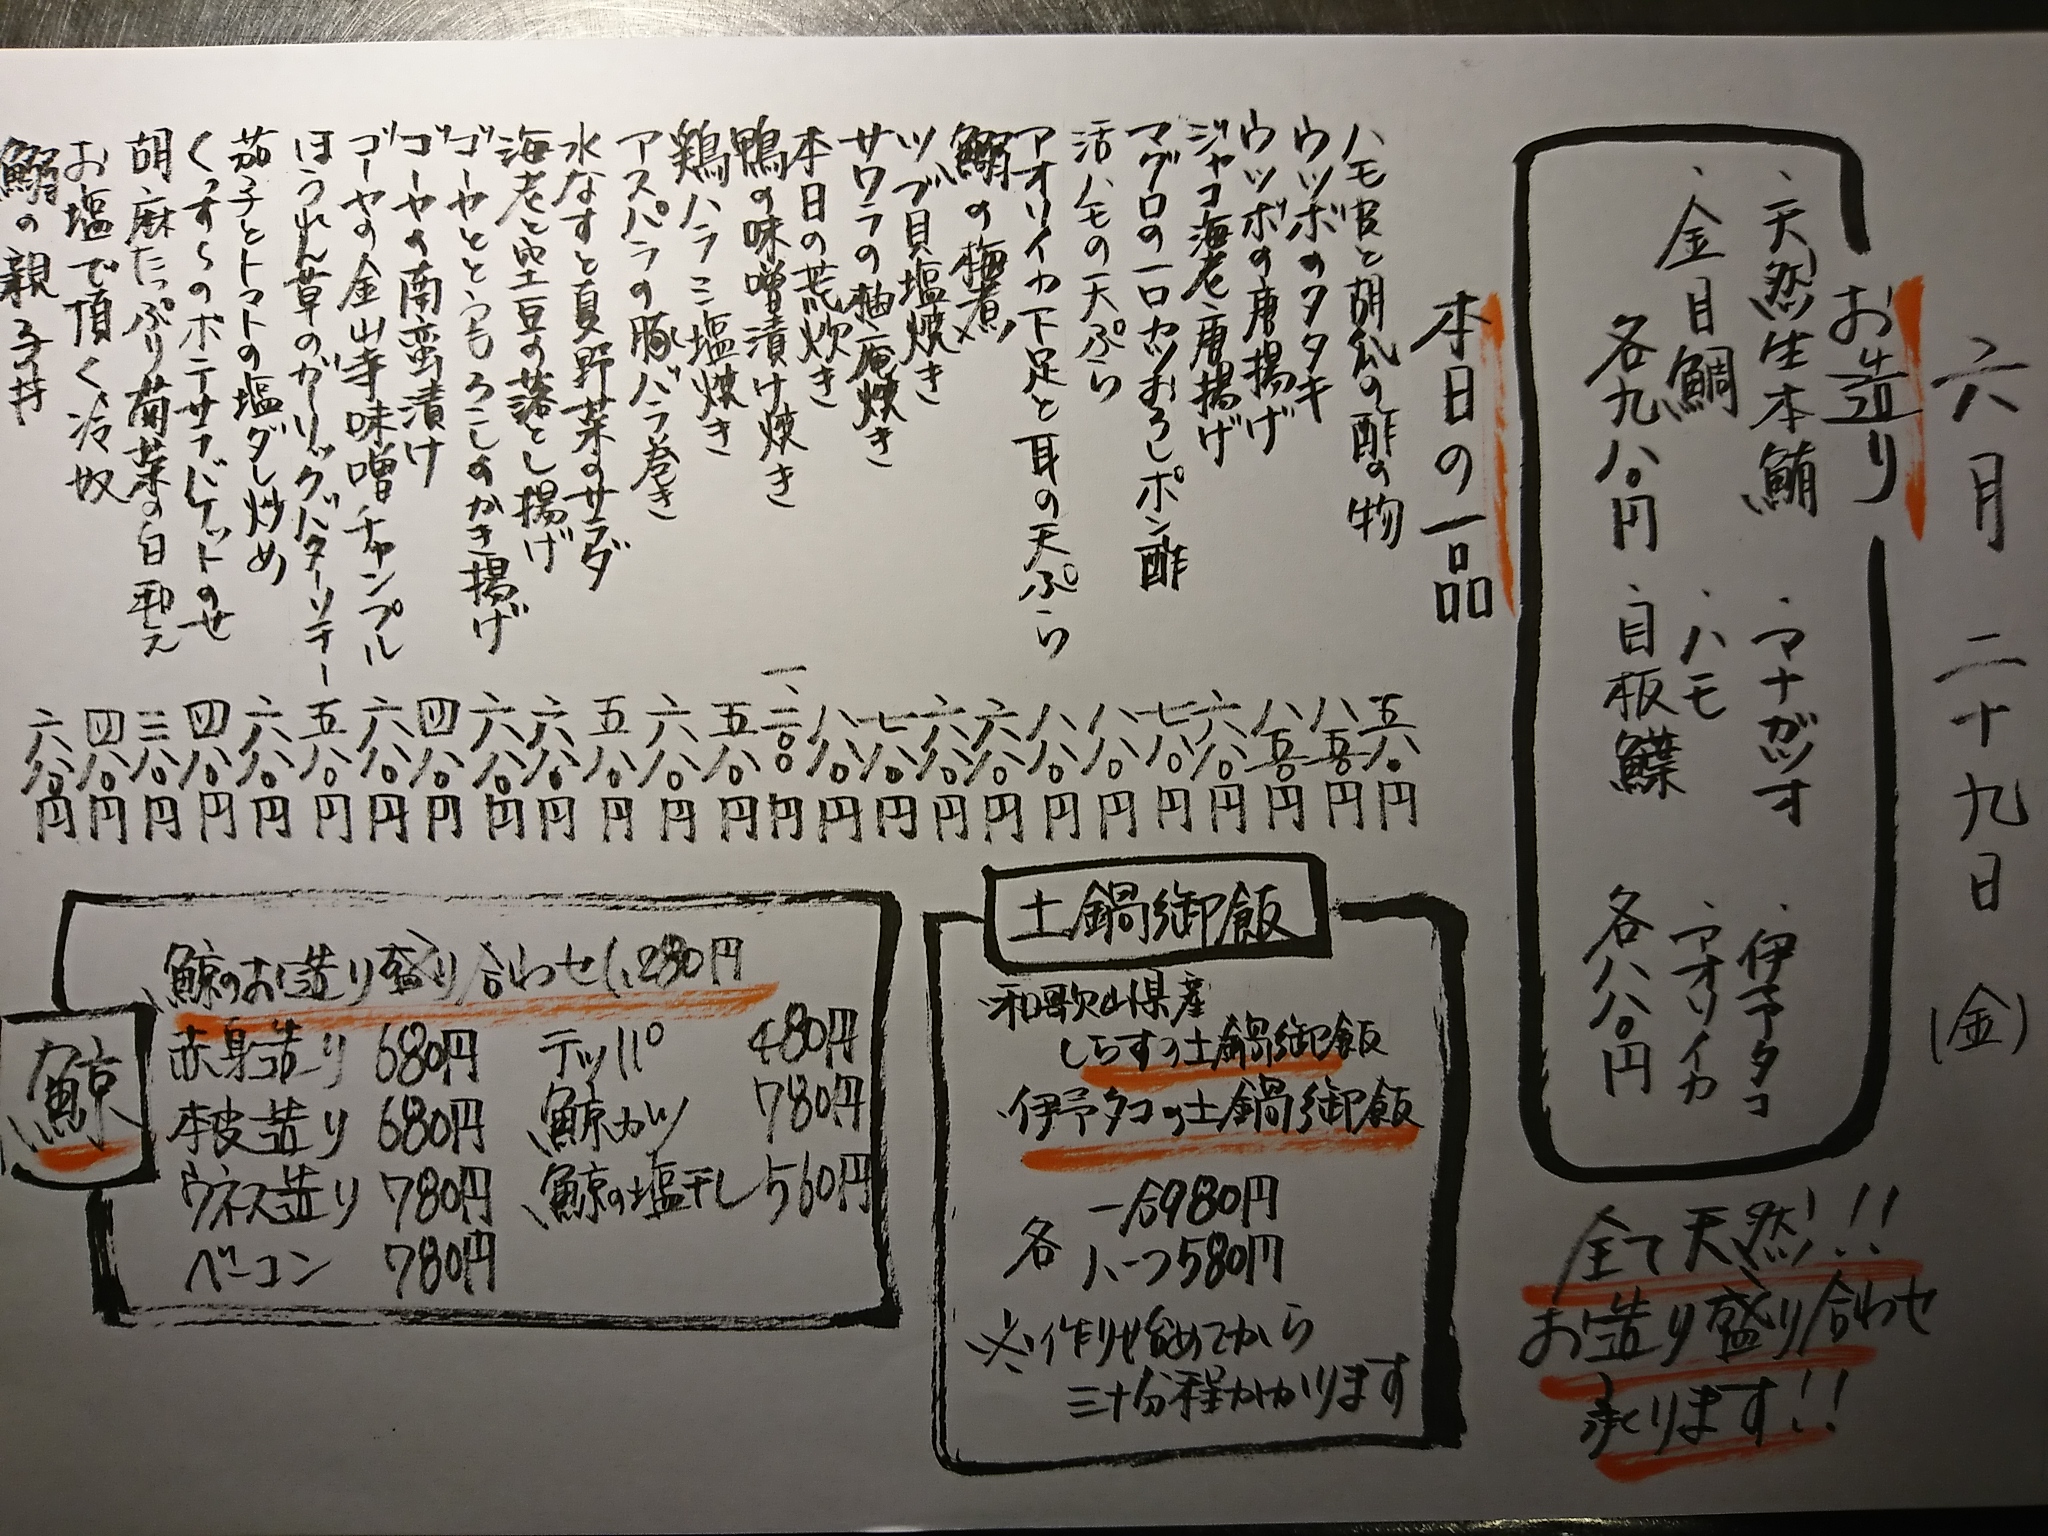 六月二十九日(金)
お造り
・天然生本鮪
・金目鯛
各九八〇円
・マナガツオ
・ハモ
・目板鰈
・伊予タコ
・アオリイカ
各八八〇円
全て天然!!
お造り盛り合わせ
承ります!!
本日の一品
ハモ皮と胡瓜の酢の物 五八〇円
ウツボのタタキ 八五〇円
ウツボの唐揚げ 八五〇円
ジャコ海老唐揚げ 六八〇円
マグロの一口カツおろしポン酢 七八〇円
活ハモの天ぷら 八八〇円
アオリイカ下足と耳の天ぷら 八八〇円
鰯の梅煮 六八〇円
ツブ貝塩焼き 六八〇円
サワラの柚庵焼き 七八〇円
本日の荒炊き 八八〇円
鴨の味噌漬け焼き 一、二〇〇円
鶏ハラミ塩焼き 五八〇円
アスパラの豚バラ巻き 六八〇円
水なすと夏野菜のサラダ 五八〇円
海老と空豆の落とし揚げ 六八〇円
ゴーヤととうもろこしのかき揚げ 六八〇円
ゴーヤの南蛮漬け 四八〇円
ゴーヤの金山寺味噌チャンプル 六八〇円
ほうれん草のガーリックバターソテー 五八〇円
茄子とトマトの塩ダレ炒め 六八〇円
くっすらのポテサラバケットのせ 四八〇円
胡麻たっぷり菊菜の白和え 三八〇円
お塩で頂く冷奴 四八〇円
鰯の親子丼 六八〇円
土鍋御飯
・和歌山県産
しらすの土鍋御飯
・伊予タコの土鍋御飯
各 一合980円
ハーフ580円
※作り始めてから
三十分程かかります
鯨
鯨のお造り盛り合わせ1,280円
赤身造り 680円
本皮造り 680円
ウネス造り 780円
ベーコン 780円
テッパ 480円
鯨カツ 780円
鯨の塩干し 560円